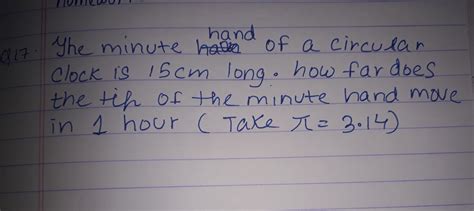 Homework
Q17. The minute hand of a circular
clock is 15cm long. how far does
the tip of the minute hand move
in 1 hour ( Take π = 3.14)